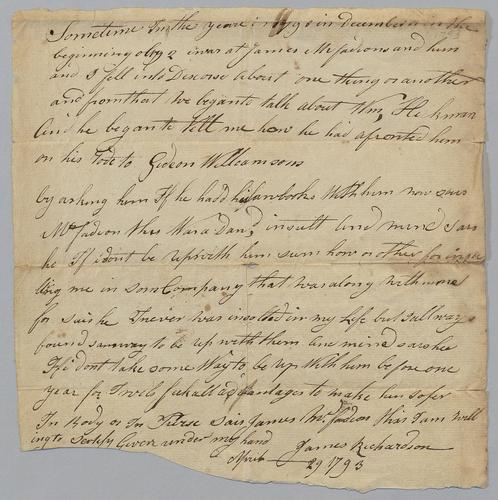 Sometime In the year in 1791 in december or in the
beginning of 92 i was at James McFadions and him
and I fell into Discorse about one thing or another
and from that We began to talk about Wm. Hickman
And he began to tell me how he had afronted him
on his Rode to Gideon Williamsons
by asking him If he hadd his lawbooks With him now says
McFadeon this Was a Dand insult And mind Sais
he If I dont be up with him sum how or other for
me in som Company that was along with me
for sais he I never was insolted in my Life but I allways
found sumway to be up with them And mind says hee
If I dont take some Way to be up With him before one
year for I wil take all advantages to make him sofer
In Body or In Purse Sais James McFadeon this I am will
ing to Sertify Given under my hand
James Richardson
Aprile 29 1793